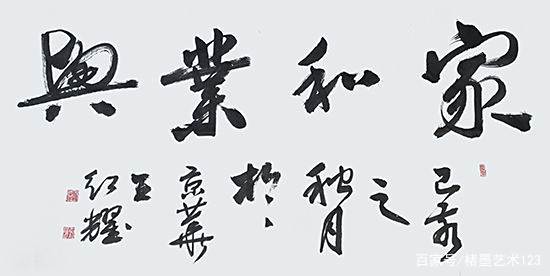 家和業興
己亥
之
秋月
於
京華
王
红耀
百家号/楮墨艺术123